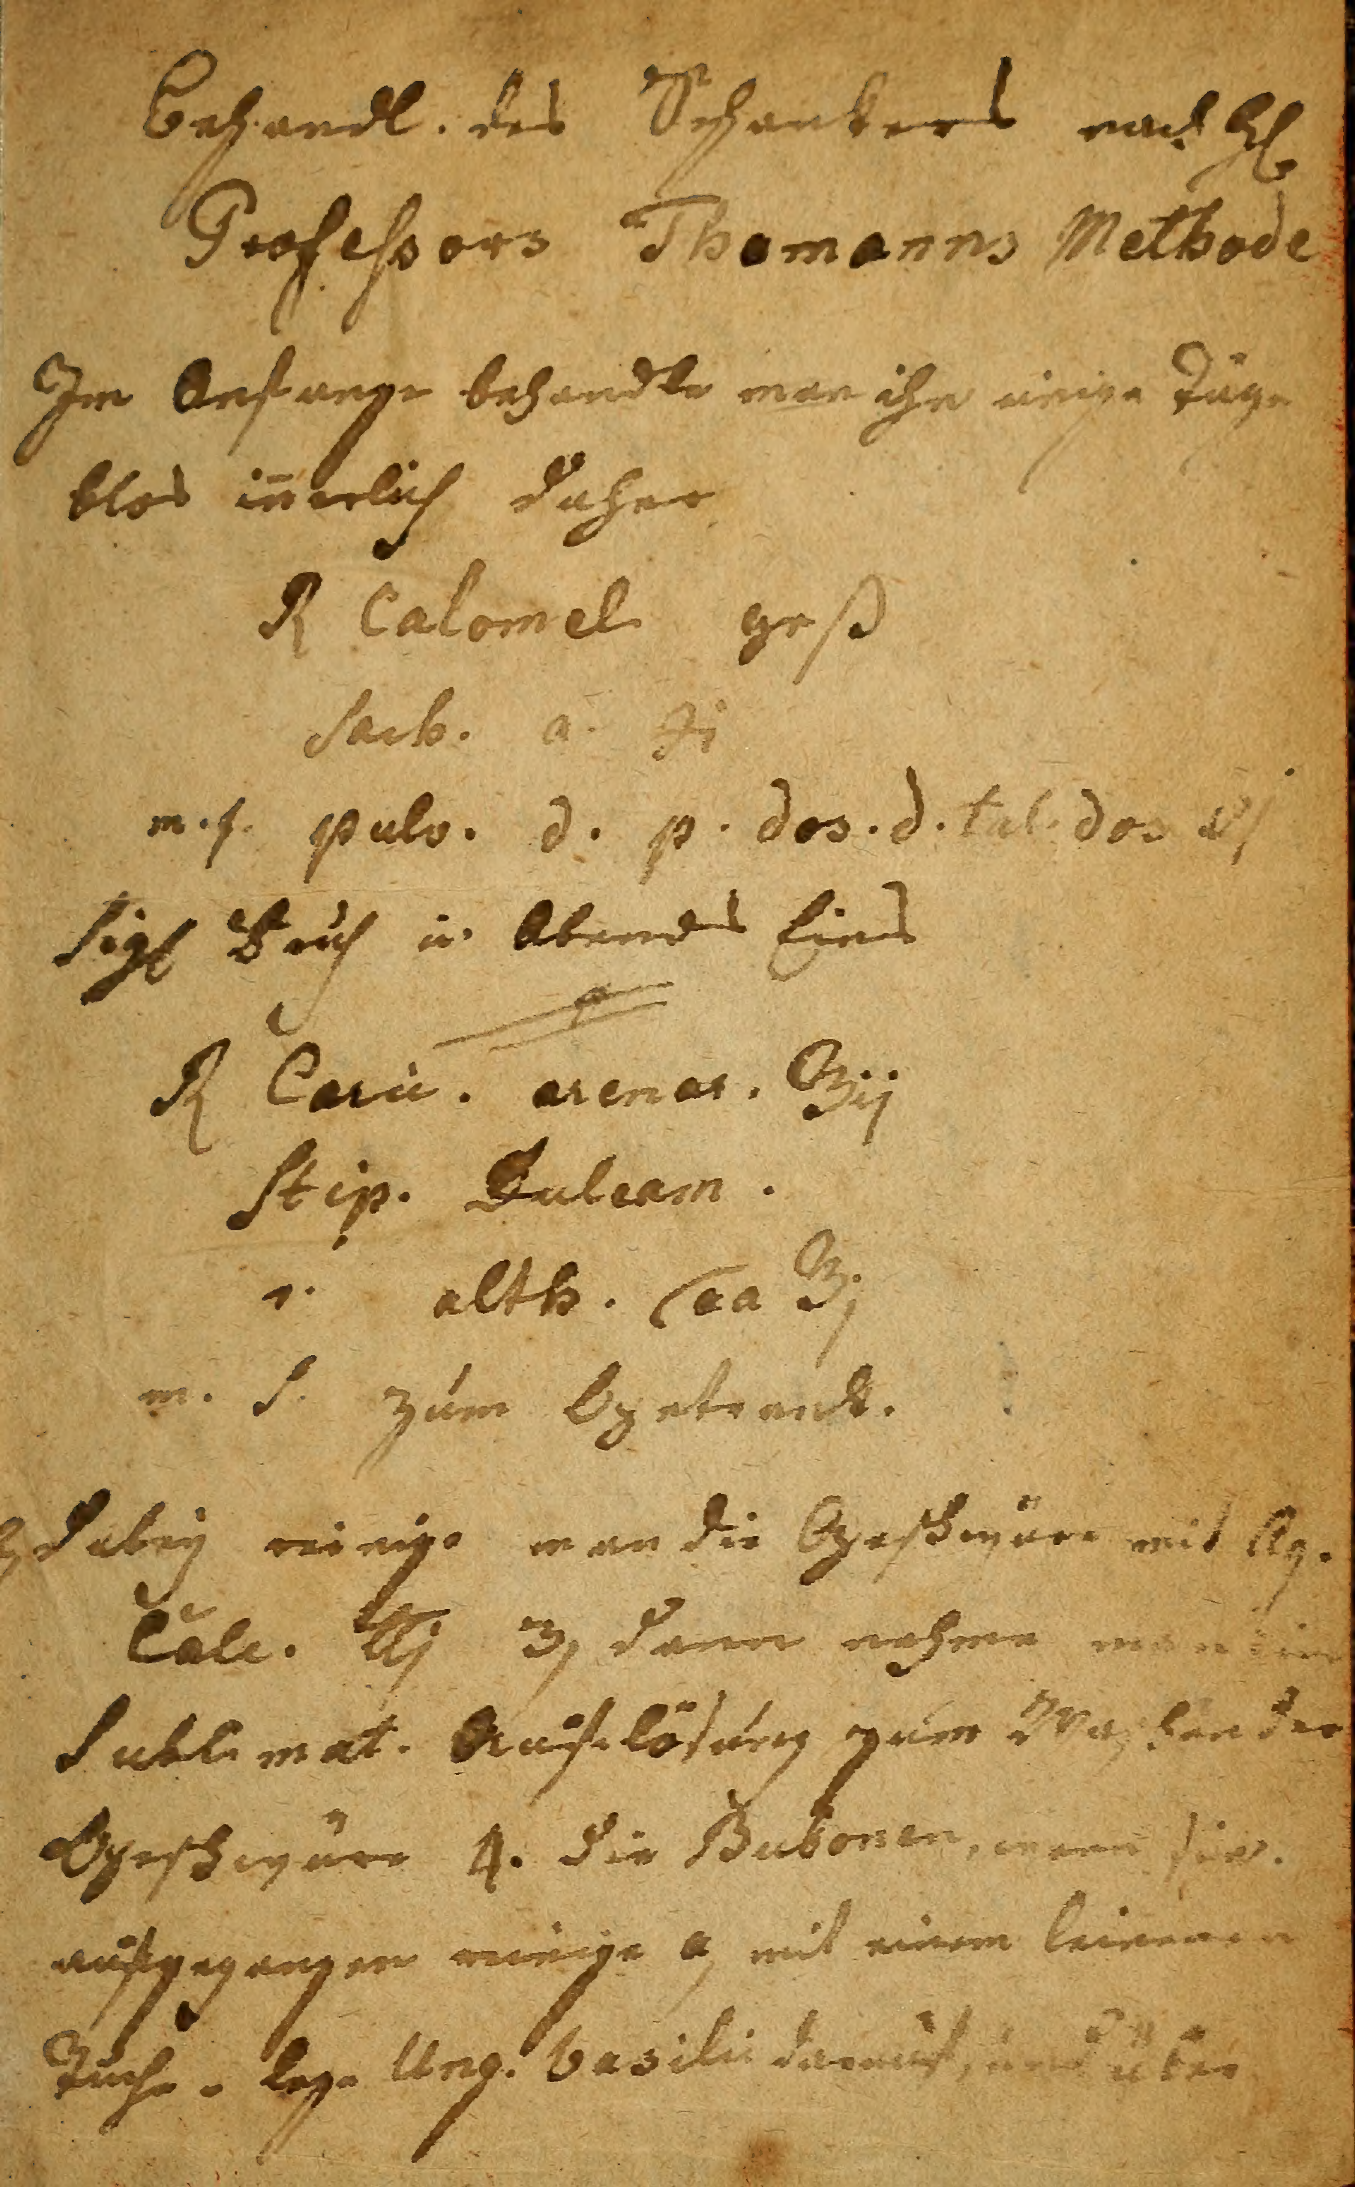 Behandl. des Schankers nach H.
Professors Thomanns Methode
Im Anfange behandle man ihn einige Täge
blos iñerlich daher
R Calomel grß
Sach. a. ʒi
m. f. pulv. d. p. dos. d. tal. dos vj
Sig Früh u. Abends Eins
R Caric. arenar. ℥ij
Stip. Dulcam.
r. alth. aa ℥j
m. S. zum Getrank.
Dabey reinige man die Geschwüre mit Aq.
Calc. ℔j dann nehme man die
Sublimat. Auflösung zum Waschen der
Geschwüre 4. die Bubonen, wenn sie
aufgegangen reinige mit einem leinenen
Tuche lege Ung. basilic darauf, und über